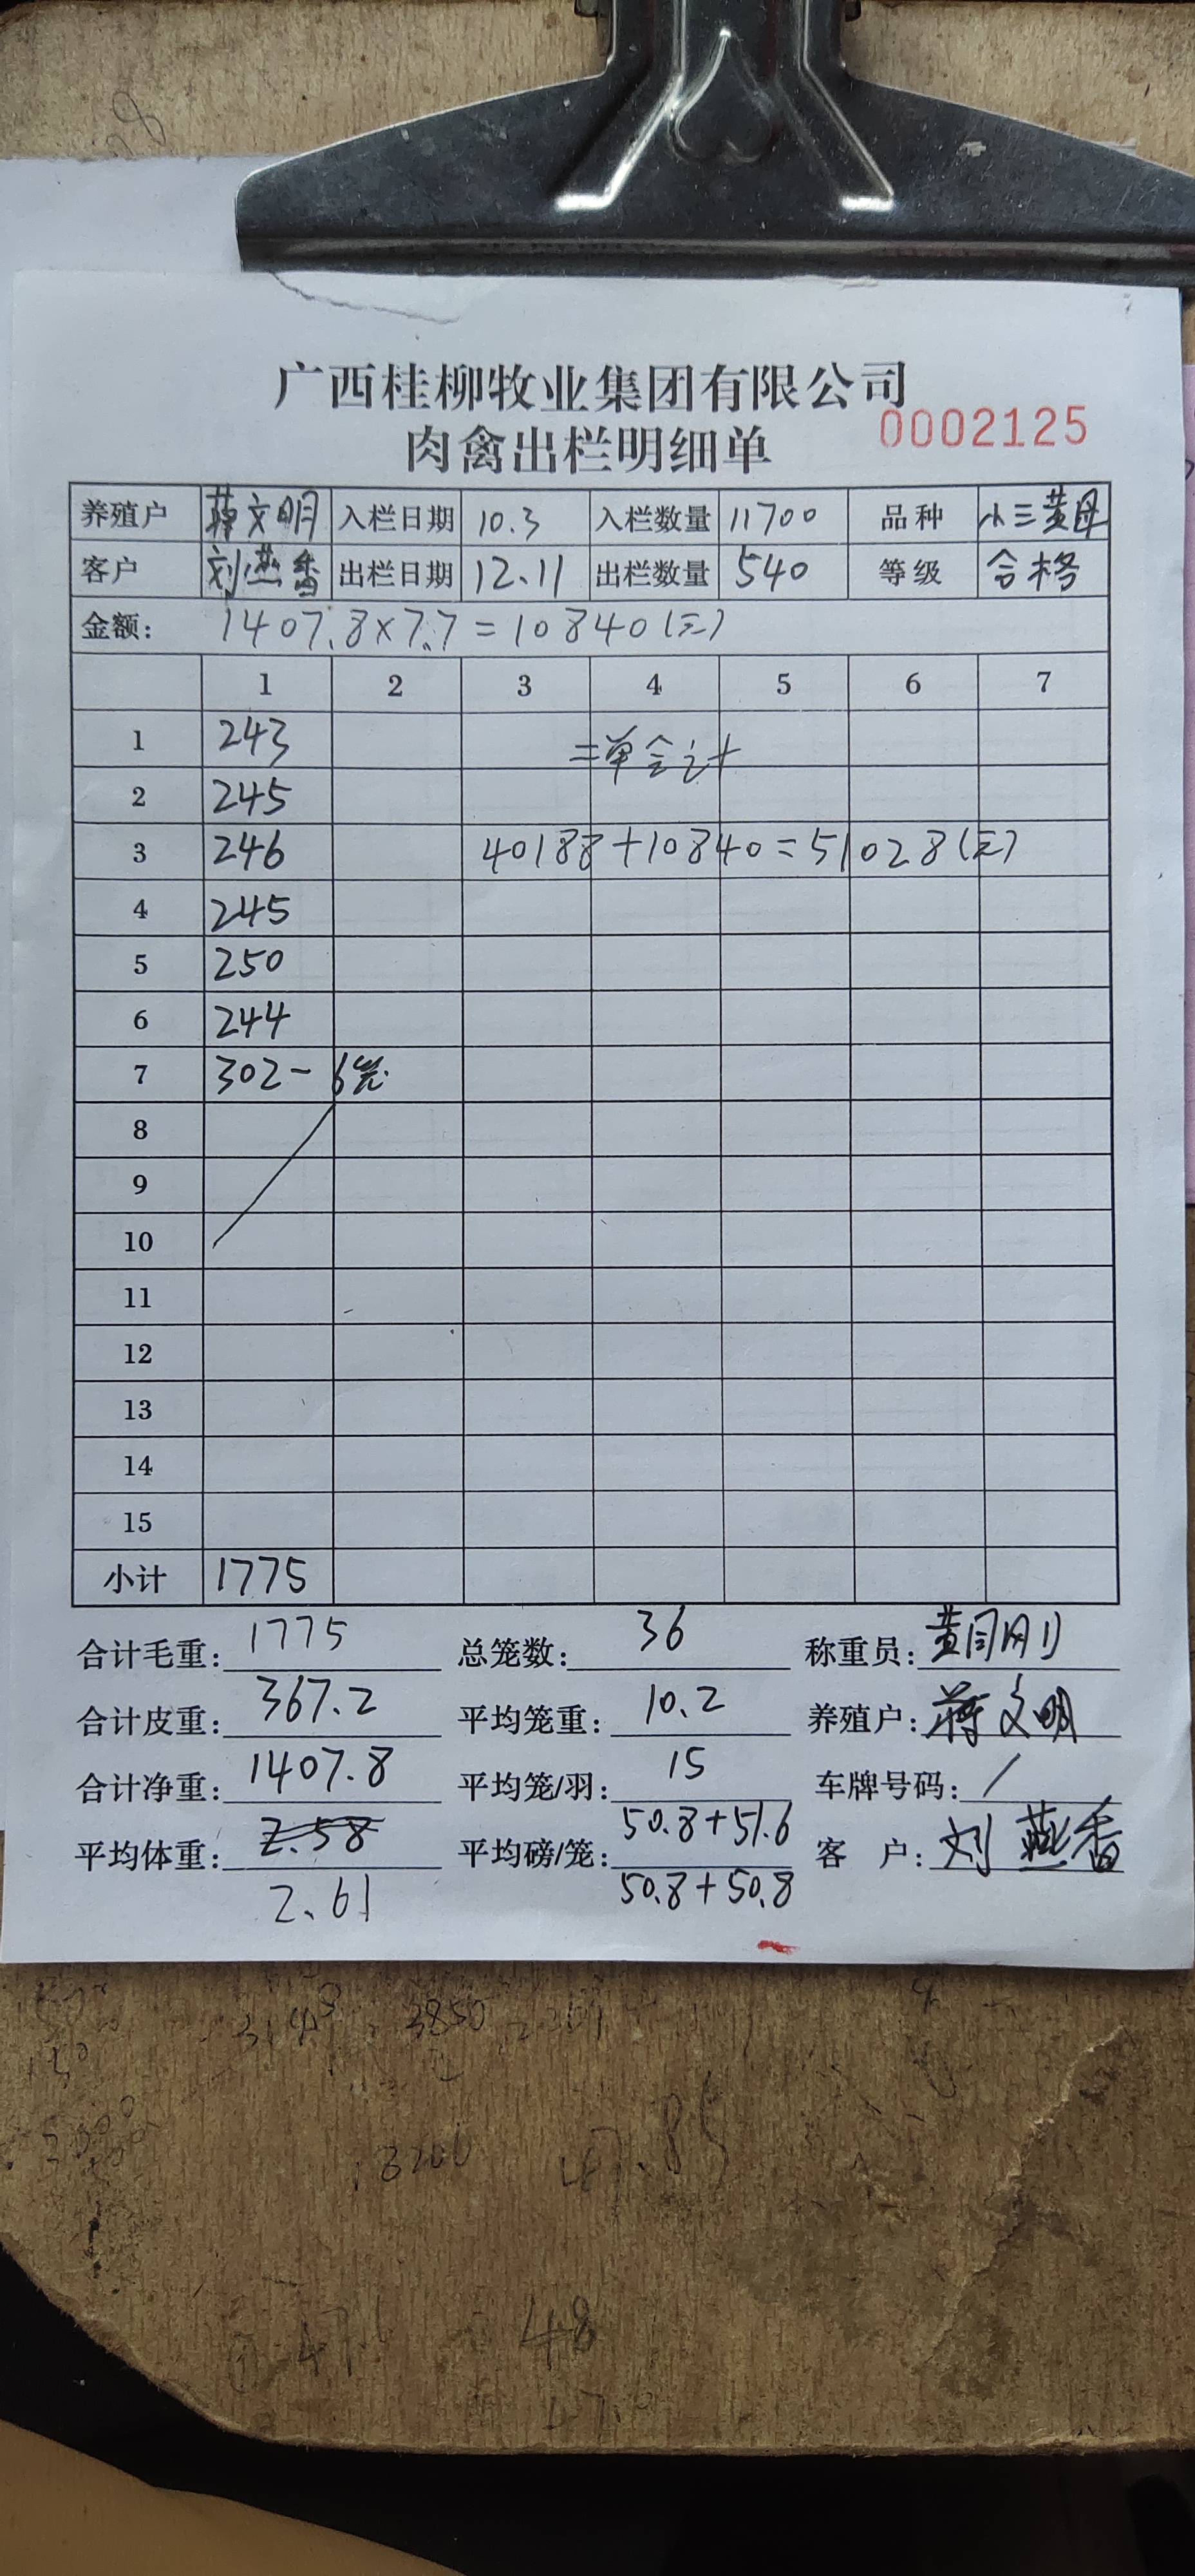 广西桂柳牧业集团有限公司
肉禽出栏明细单 0002125
养殖户 蒋文明 入栏日期 10.3 入栏数量 11700 品种 小三黄母
客户 刘燕香 出栏日期 12.11 出栏数量 540 等级 合格
金额: 1407.8×7.7=10840(元)
1 2 3 4 5 6 7
1 243 二单合计
2 245
3 246 40188+10840=51028(元)
4 245
5 250
6 244
7 302- 6笼
8
9
10
11
12
13
14
15
小计 1775
合计毛重: 1775 总笼数: 36 称重员:
合计皮重: 367.2 平均笼重: 10.2 养殖户: 蒋文明
合计净重: 1407.8 平均笼/羽: 15 车牌号码: /
平均体重: 2.58 平均磅/笼: 50.8+51.6 客户: 刘燕香
2.61 50.8+50.8
3850
48